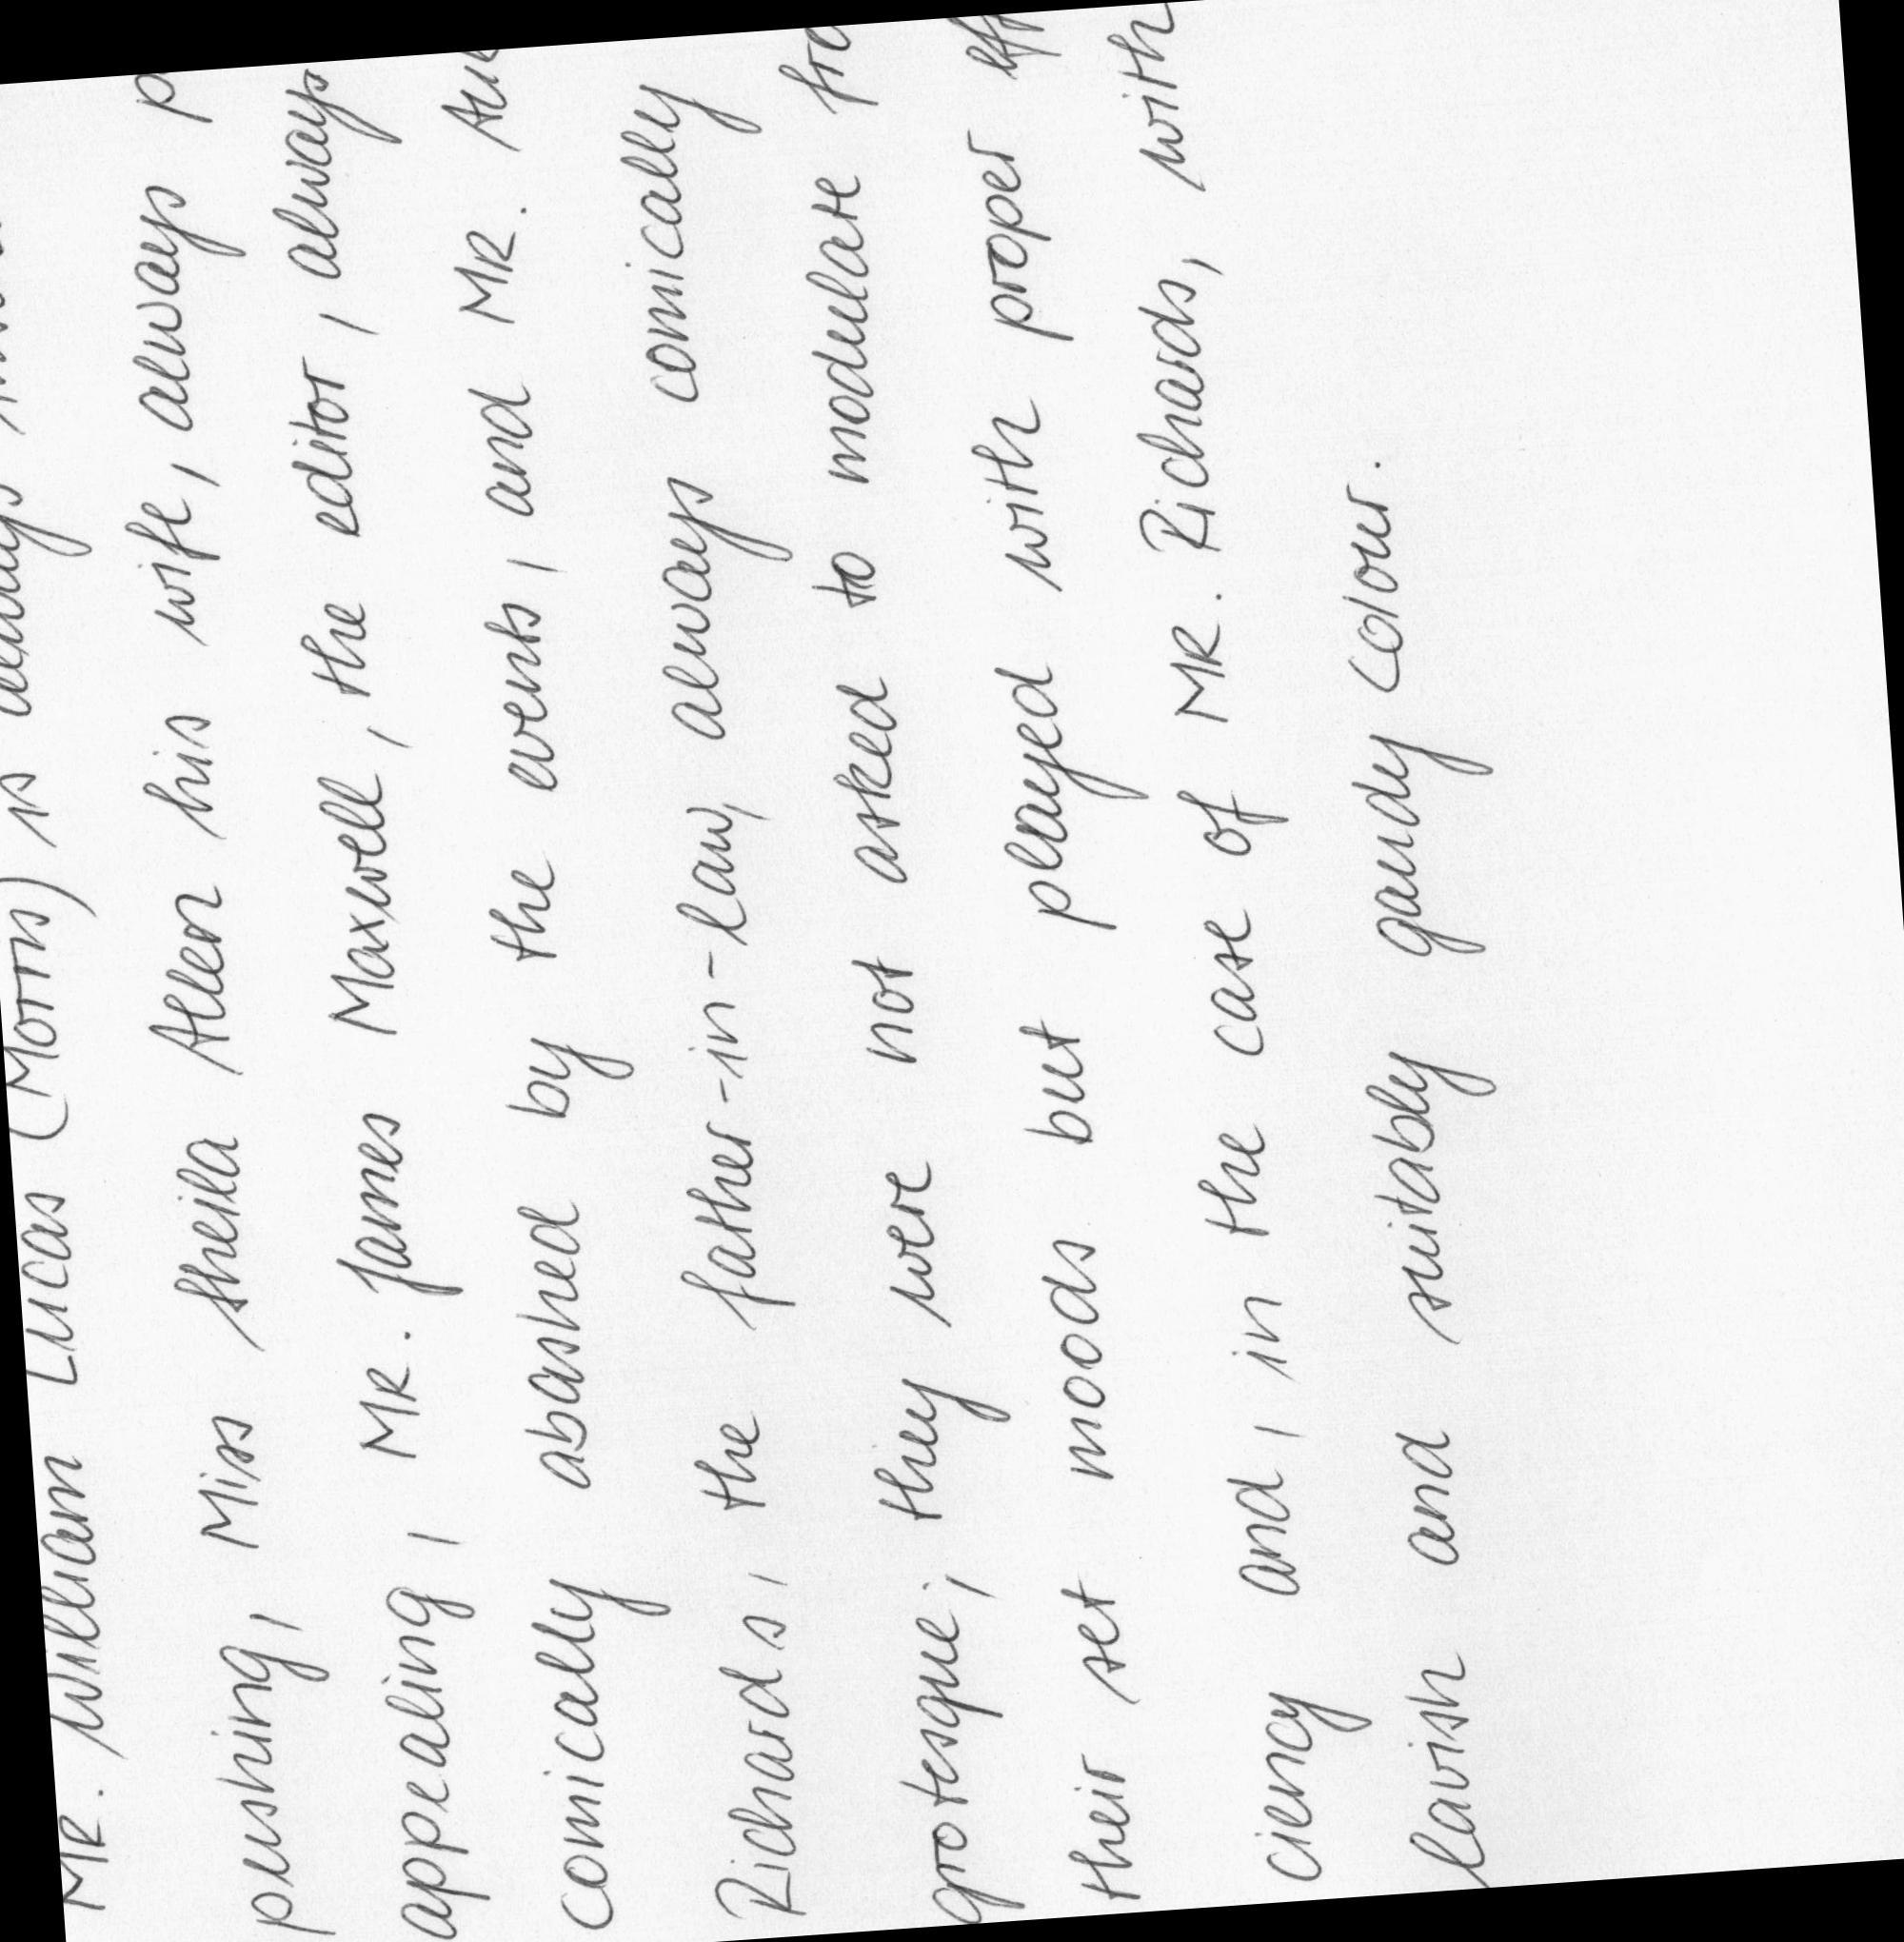 Mr. William Lucas (Morris) is always
pushing, Miss Sheila Allen his wife, always
appealing, Mr. James Maxwell, the editor, always
comically abashed by the events, and Mr.
Richards, the father-in-law, always comically
grotesque; they were not asked to modulate
their set moods but played with proper
ciency and, in the case of Mr. Richards, with
lavish and suitably gaudy colour.